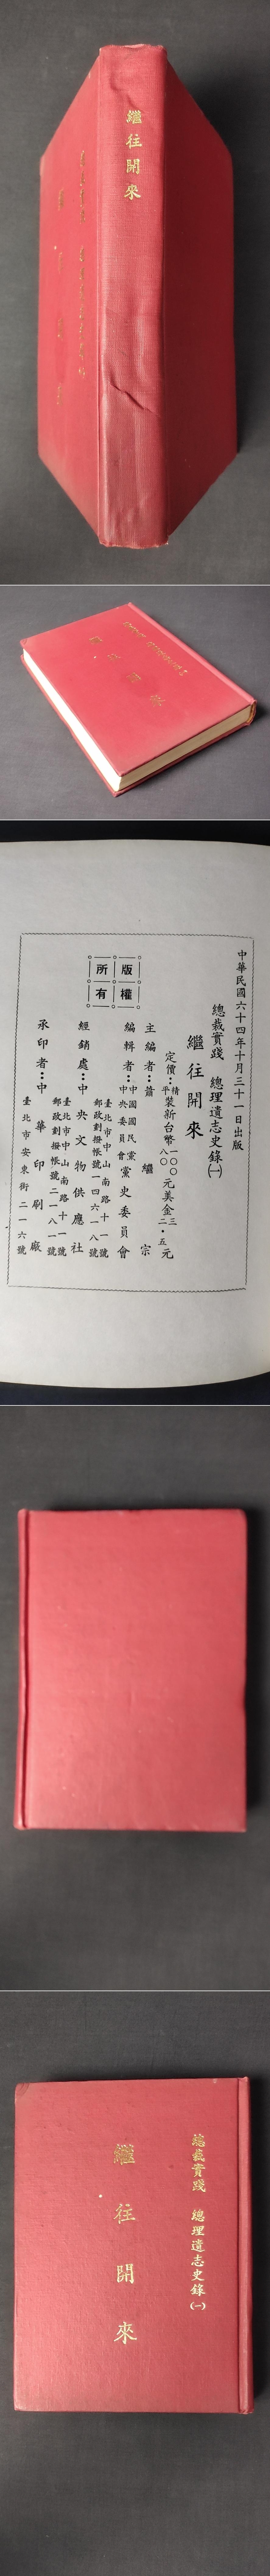 繼往開來
中華民國六十四年十月三十一日出版
總裁實踐 總理遺志史錄㈠
繼往開來
定價：精裝新台幣一〇〇元美金三元
平裝新台幣八〇元美金二・五元
主編者：蕭繼宗
編輯者：中國國民黨中央委員會黨史委員會
臺北市中山南路十一號
郵政劃撥帳號一四六一八號
經銷處：中央文物供應社
臺北市中山南路十一號
郵政劃撥帳號二一八一號
承印者：中華印刷廠
臺北市安東街二一六號
版權所有
總裁實踐 總理遺志史錄㈠
繼往開來